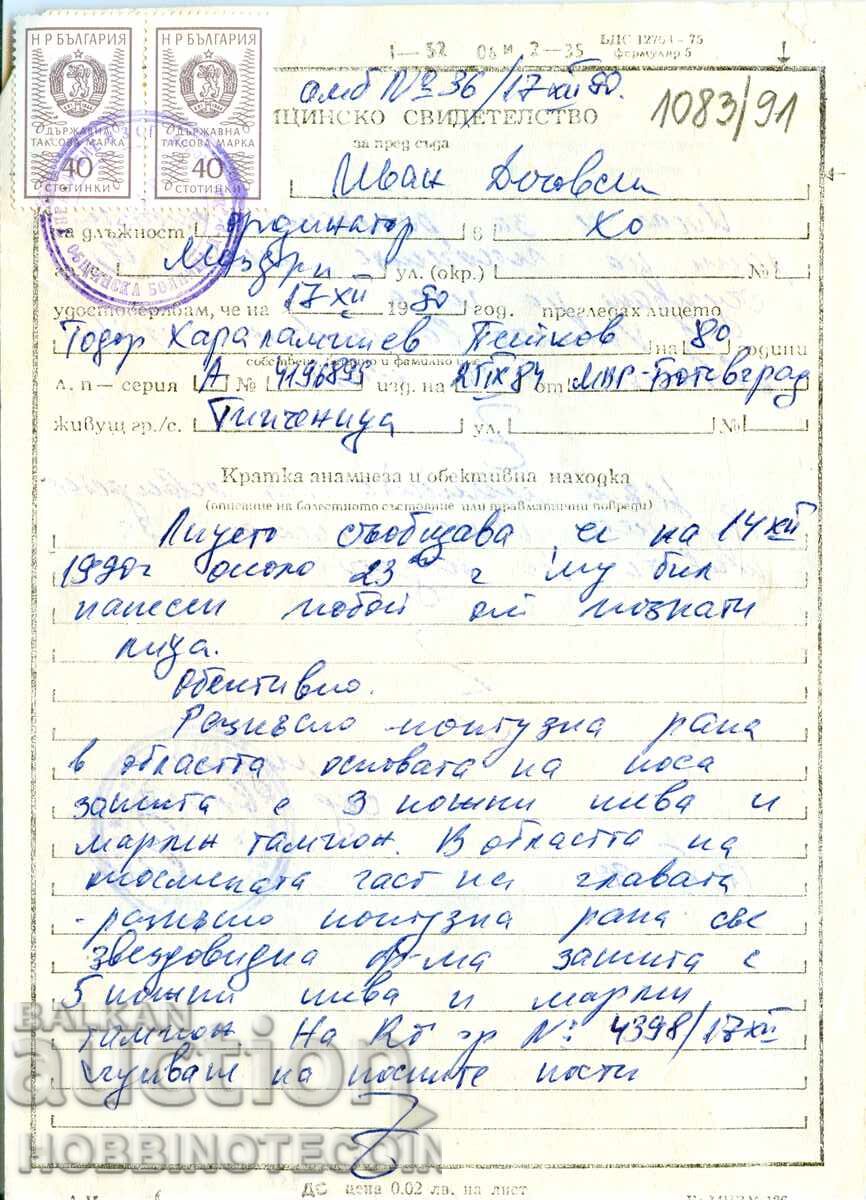 Н Р БЪЛГАРИЯ Н Р БЪЛГАРИЯ
ДЪРЖАВНА ДЪРЖАВНА
ТАКСОВА МАРКА ТАКСОВА МАРКА
40 40
СТОТИНКИ СТОТИНКИ
БДС 12704-75
формуляр 5
амб № 36/17 XII 90.
1083/91
ЦИНСКО СВИДЕТЕЛСТВО
за пред съда
Иван
на длъжност ординатор в ХО
Мездра ул. (окр.) №
удостоверявам, че на 17 XII 1990 год. прегледах лицето
Тодор Харалампиев Петков на 80 години
собствено, бащино и фамилно име
л. п - серия А № 4196895 изд. на IX 84 от МВР-Ботевград
живущ гр./с. Типченица ул. №
Кратка анамнеза и обективна находка
(описание на болестното състояние или травматични повреди)
Лицето съобщава че на 14 XII
1990г около 23 ч му бил
нанесен побой от познати
лица.
Обективно.
Разкъсно контузна рана
в областта основата на носа
зашита с 3 кожни шева и
марлен тампон. В областта на
космената част на главата
- разкъсно контузна рана със
звездовидна ф-ма зашита с
5 кожни шева и марлен
тампон На Rö гр №: 4398/17 XII
счупване на носните кости
ДС цена 0.02 лв. на лист
BALKAN
auction
HOBBINOTECOIN